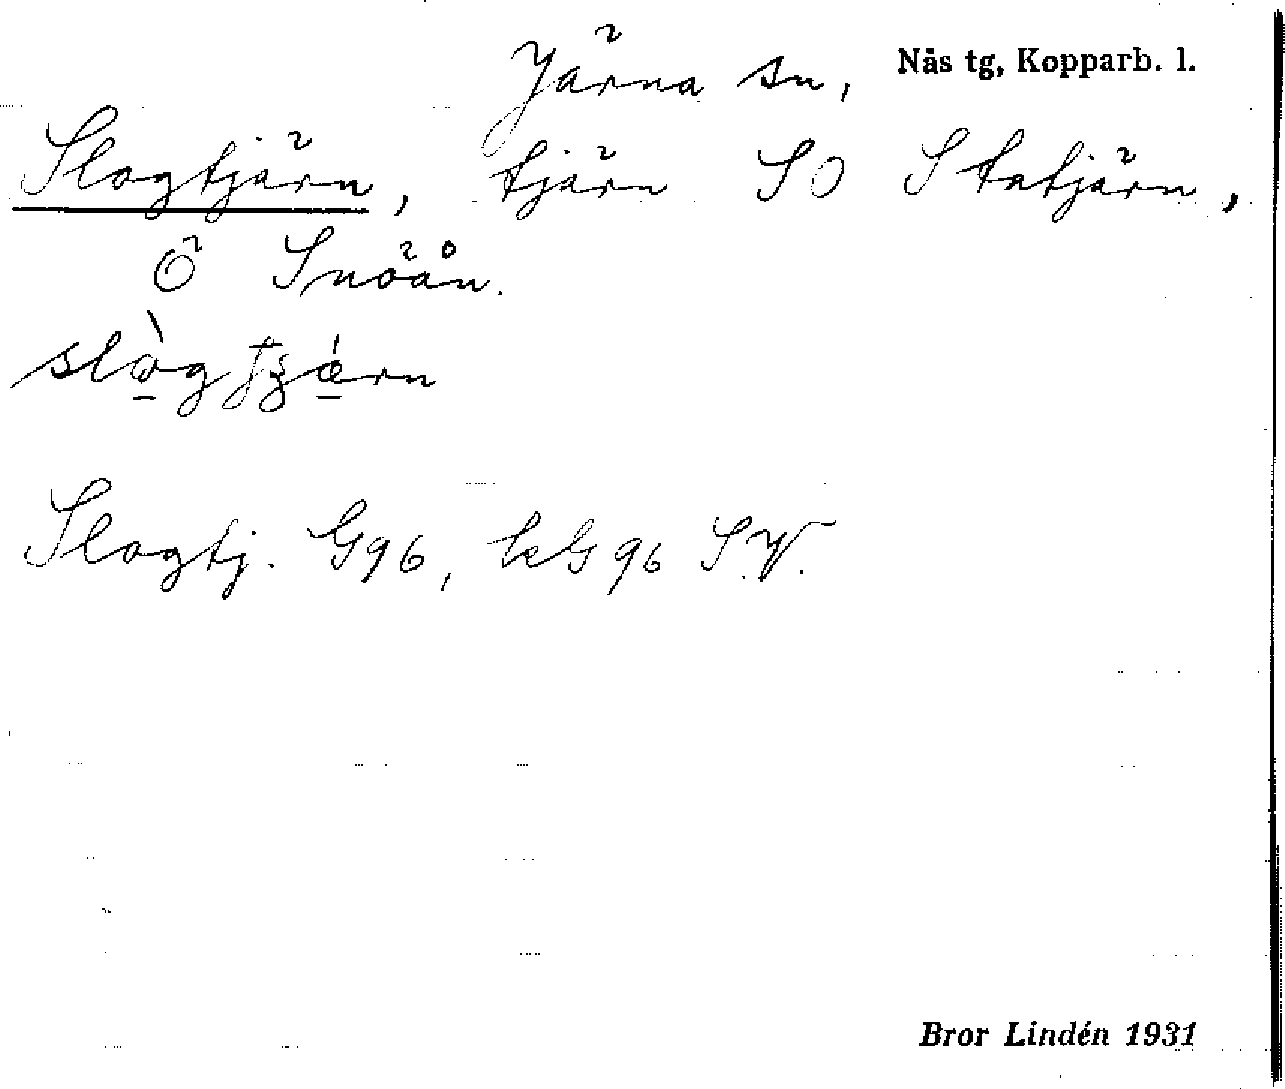 Järna sn, Nås tg, Kopparb. l.
Slogtjärn, tjärn SO Statjärn,
Ö Snöån.
Slogtj. G96, kG96 S.V.
Bror Lindén 1931